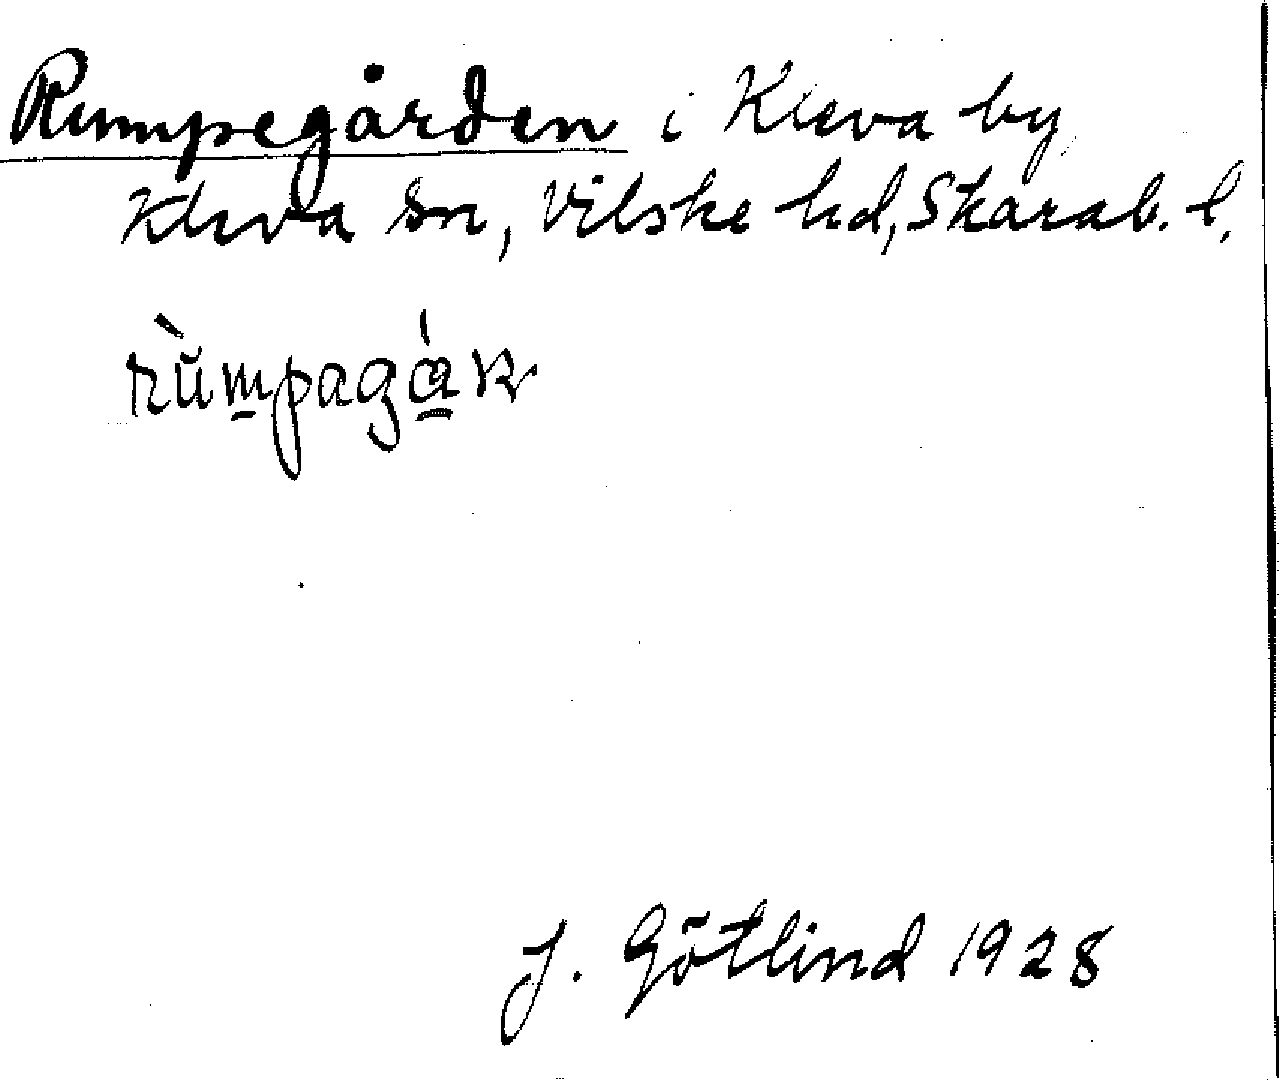 Rumpegården i Kleva by
Kleva sn, Vilske hd, Skarab. l.
J. Götlind 1928